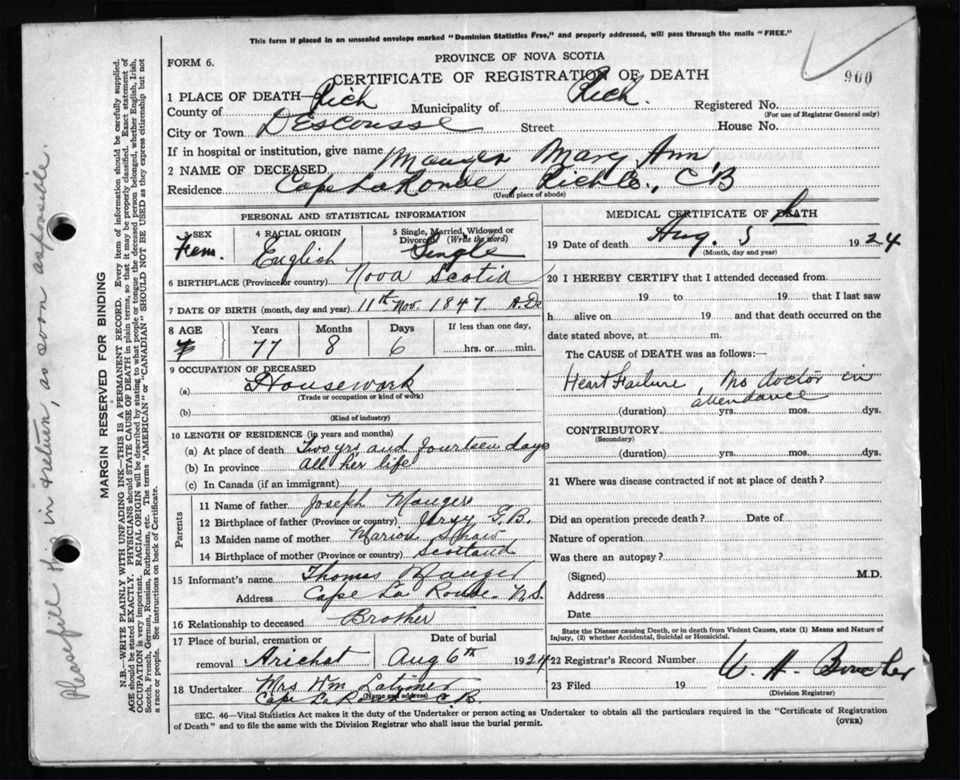 This form if placed in an unsealed envelope marked "Dominion Statistics Free," and properly addressed, will pass through the mails "FREE."
FORM 6.
PROVINCE OF NOVA SCOTIA
CERTIFICATE OF REGISTRATION OF DEATH
960
1 PLACE OF DEATH—
County of Rich Municipality of Rich. Registered No.
(For use of Registrar General only)
City or Town DEscousse Street House No.
If in hospital or institution, give name
2 NAME OF DECEASED Mauger Mary Ann,
Residence Cape LaRonde, Rich Co., CB
(Usual place of abode)
PERSONAL AND STATISTICAL INFORMATION
3 SEX Fem.
4 RACIAL ORIGIN English
5 Single, Married, Widowed or Divorced (Write the word) Single
6 BIRTHPLACE (Province or country) Nova Scotia
7 DATE OF BIRTH (month, day and year) 11th Nov. 1847. A.D.
8 AGE Years Months Days If less than one day,
77 8 6 hrs. or min.
9 OCCUPATION OF DECEASED
(a) Housework
(Trade or occupation or kind of work)
(b)
(Kind of industry)
10 LENGTH OF RESIDENCE (in years and months)
(a) At place of death Two yrs and fourteen days
(b) In province all her life
(c) In Canada (if an immigrant)
Parents
11 Name of father Joseph Mauger
12 Birthplace of father (Province or country) Jersy G.B.
13 Maiden name of mother Marion Shaw
14 Birthplace of mother (Province or country) Scotland
15 Informant's name Thomas Mauger
Address Cape La Ronde N.S.
16 Relationship to deceased Brother
17 Place of burial, cremation or removal Arichat
Date of burial Aug 6th 1924
18 Undertaker Mrs Wm Latimer
(Name and address)
Cape LaRonde C.B.
MEDICAL CERTIFICATE OF DEATH
19 Date of death Aug. 5 1924
(Month, day and year)
20 I HEREBY CERTIFY that I attended deceased from
19 to 19 that I last saw
h alive on 19 and that death occurred on
date stated above, at m.
The CAUSE of DEATH was as follows:—
Heart Failure, no doctor in
attendance
(duration) yrs. mos. dys.
CONTRIBUTORY
(Secondary)
(duration) yrs. mos. dys.
21 Where was disease contracted if not at place of death?
Did an operation precede death? Date of
Nature of operation
Was there an autopsy?
(Signed) M.D.
Address
Date
State the Disease causing Death, or in death from Violent Causes, state (1) Means and Nature of
Injury, (2) whether Accidental, Suicidal or Homicidal.
22 Registrar's Record Number
23 Filed 19 W. H. Boucher
(Division Registrar)
SEC. 46—Vital Statistics Act makes it the duty of the Undertaker or person acting as Undertaker to obtain all the particulars required in the "Certificate of Registration
of Death" and to file the same with the Division Registrar who shall issue the burial permit.
(OVER)
MARGIN RESERVED FOR BINDING
N.B.—WRITE PLAINLY WITH UNFADING INK—THIS IS A PERMANENT RECORD. Every item of information should be carefully supplied.
AGE should be stated EXACTLY. PHYSICIANS should STATE CAUSE OF DEATH in plain terms, so that it may be properly classified. Exact statement of
OCCUPATION is very important. RACIAL ORIGIN will be described by stating to what people or tongue the deceased person belonged, whether English, Irish,
Scotch, French, German, Russian, Ruthenian, etc. The terms "AMERICAN" or "CANADIAN" SHOULD NOT BE USED as they express citizenship but not
a race or people. See instructions on back of Certificate.
Please fill this in & return, as soon as possible.